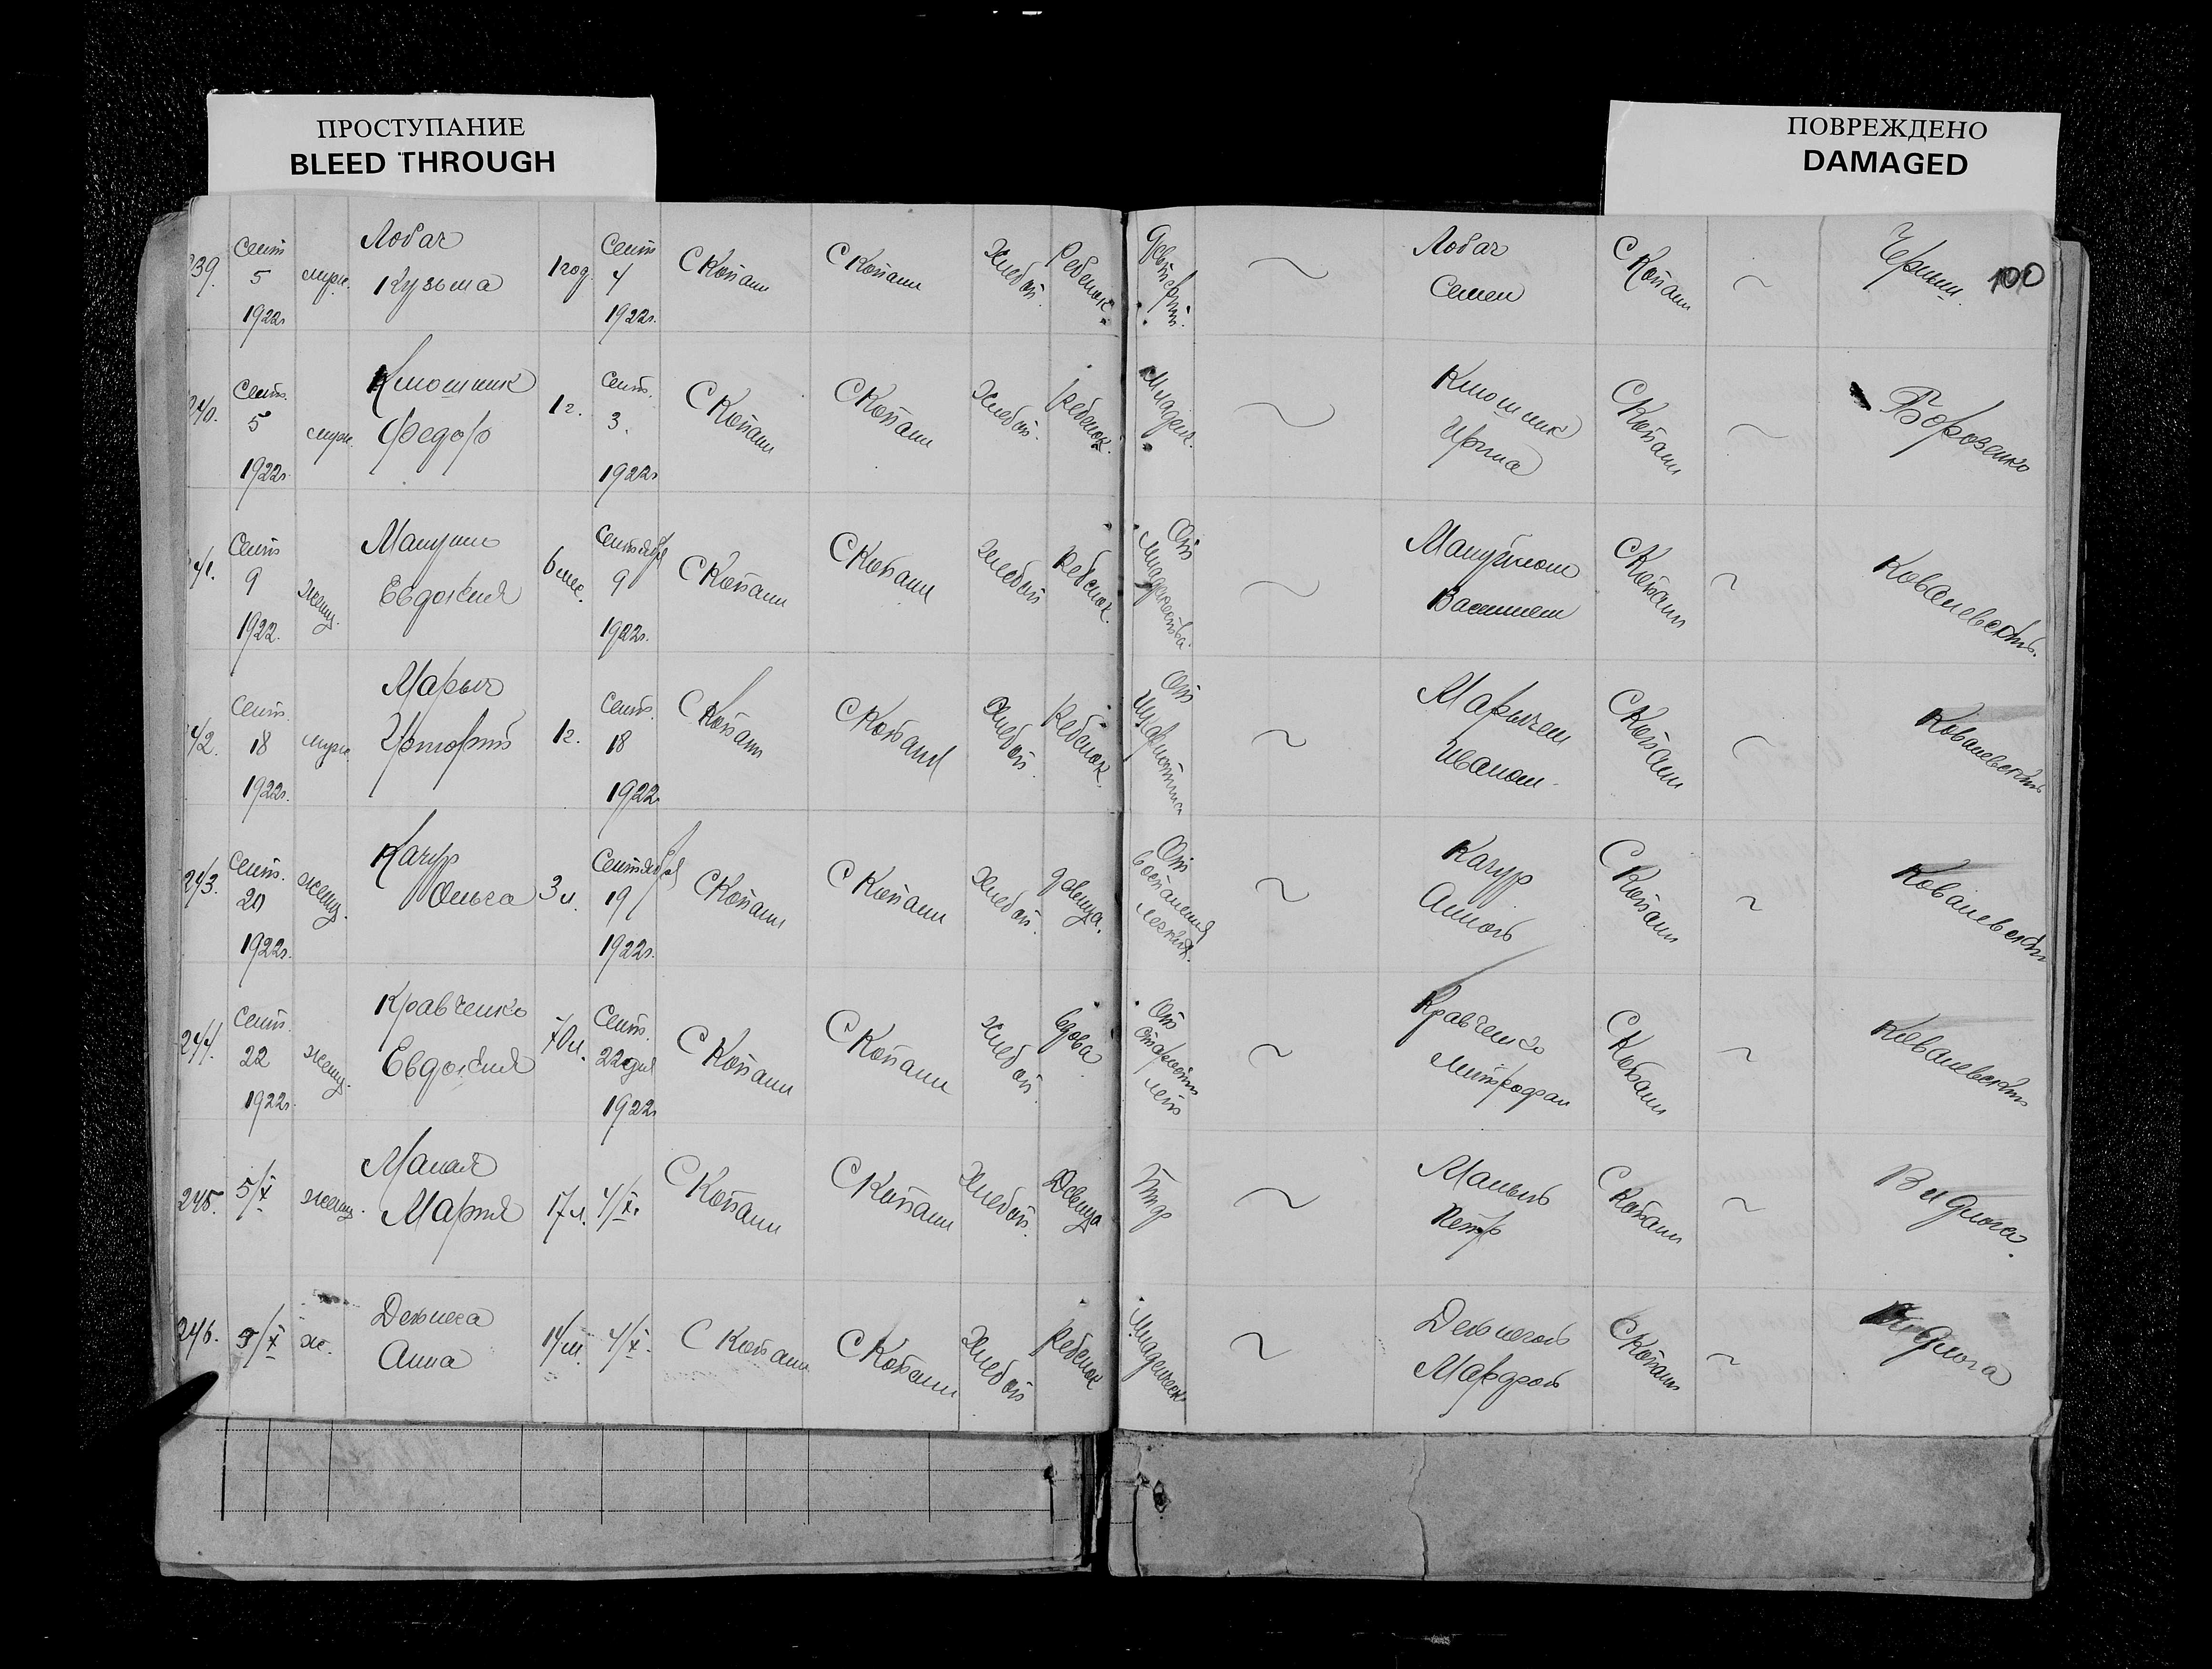 ПРОСТУПАНИЕ
BLEED THROUGH
ПОВРЕЖДЕНО
DAMAGED
100
239. Сент 5 1922г муж. Лобач Кузьма 1 год. Сент 4 1922г. С Копани С Копани Хлебоп. Ребенок ~ Лобач Семен С Копани ~
240. Сент. 5 1922г. муж. Клюшник Федор 1 г. Сент. 3. 1922г С Копани С Копани Хлебоп. ребенок. Младенч. ~ Клюшник Ирина С Копани ~ Борозенко
241. Сент 9 1922. Женщ. Евдокия 6 мес. Сентября 9 1922г. С Копани С Копани Хлебоп Ребенок. От младенчества ~ Василием С Копани ~ Ковалевскій.
242. Сент. 18 1922г. муж Марыч Григорій 1 г. Сент. 18 1922 С Копани С Копани Хлебоп. Ребенок От ~ Марычем Иваном. С Копани ~ Ковалевскій
243. Сент. 20 1922г. женщ. Качур Ольга 3 л. Сентября 19 1922г. С Копани С Копани Хлебоп. девица. От воспаления легких. ~ Качур Анной С Копани ~ Ковалевскій
244. Сент. 22 1922г женщ. Кравченко Евдокия 70 л. Сент. 22 дня 1922г С Копани С Копани Хлебоп. вдова От старости лет ~ Кравченко Митрофан С Копани ~ Ковалевскій
245. 5/X женщ. Малая Мария 17 л. 4/X. С Копани С Копани Хлебоп. Девица Тиф ~ Малый Петр С Копани ~
246. 5/X ж. Анна 4/X. С Копани С Копани Хлебоп Ребенок ~ С Копани ~